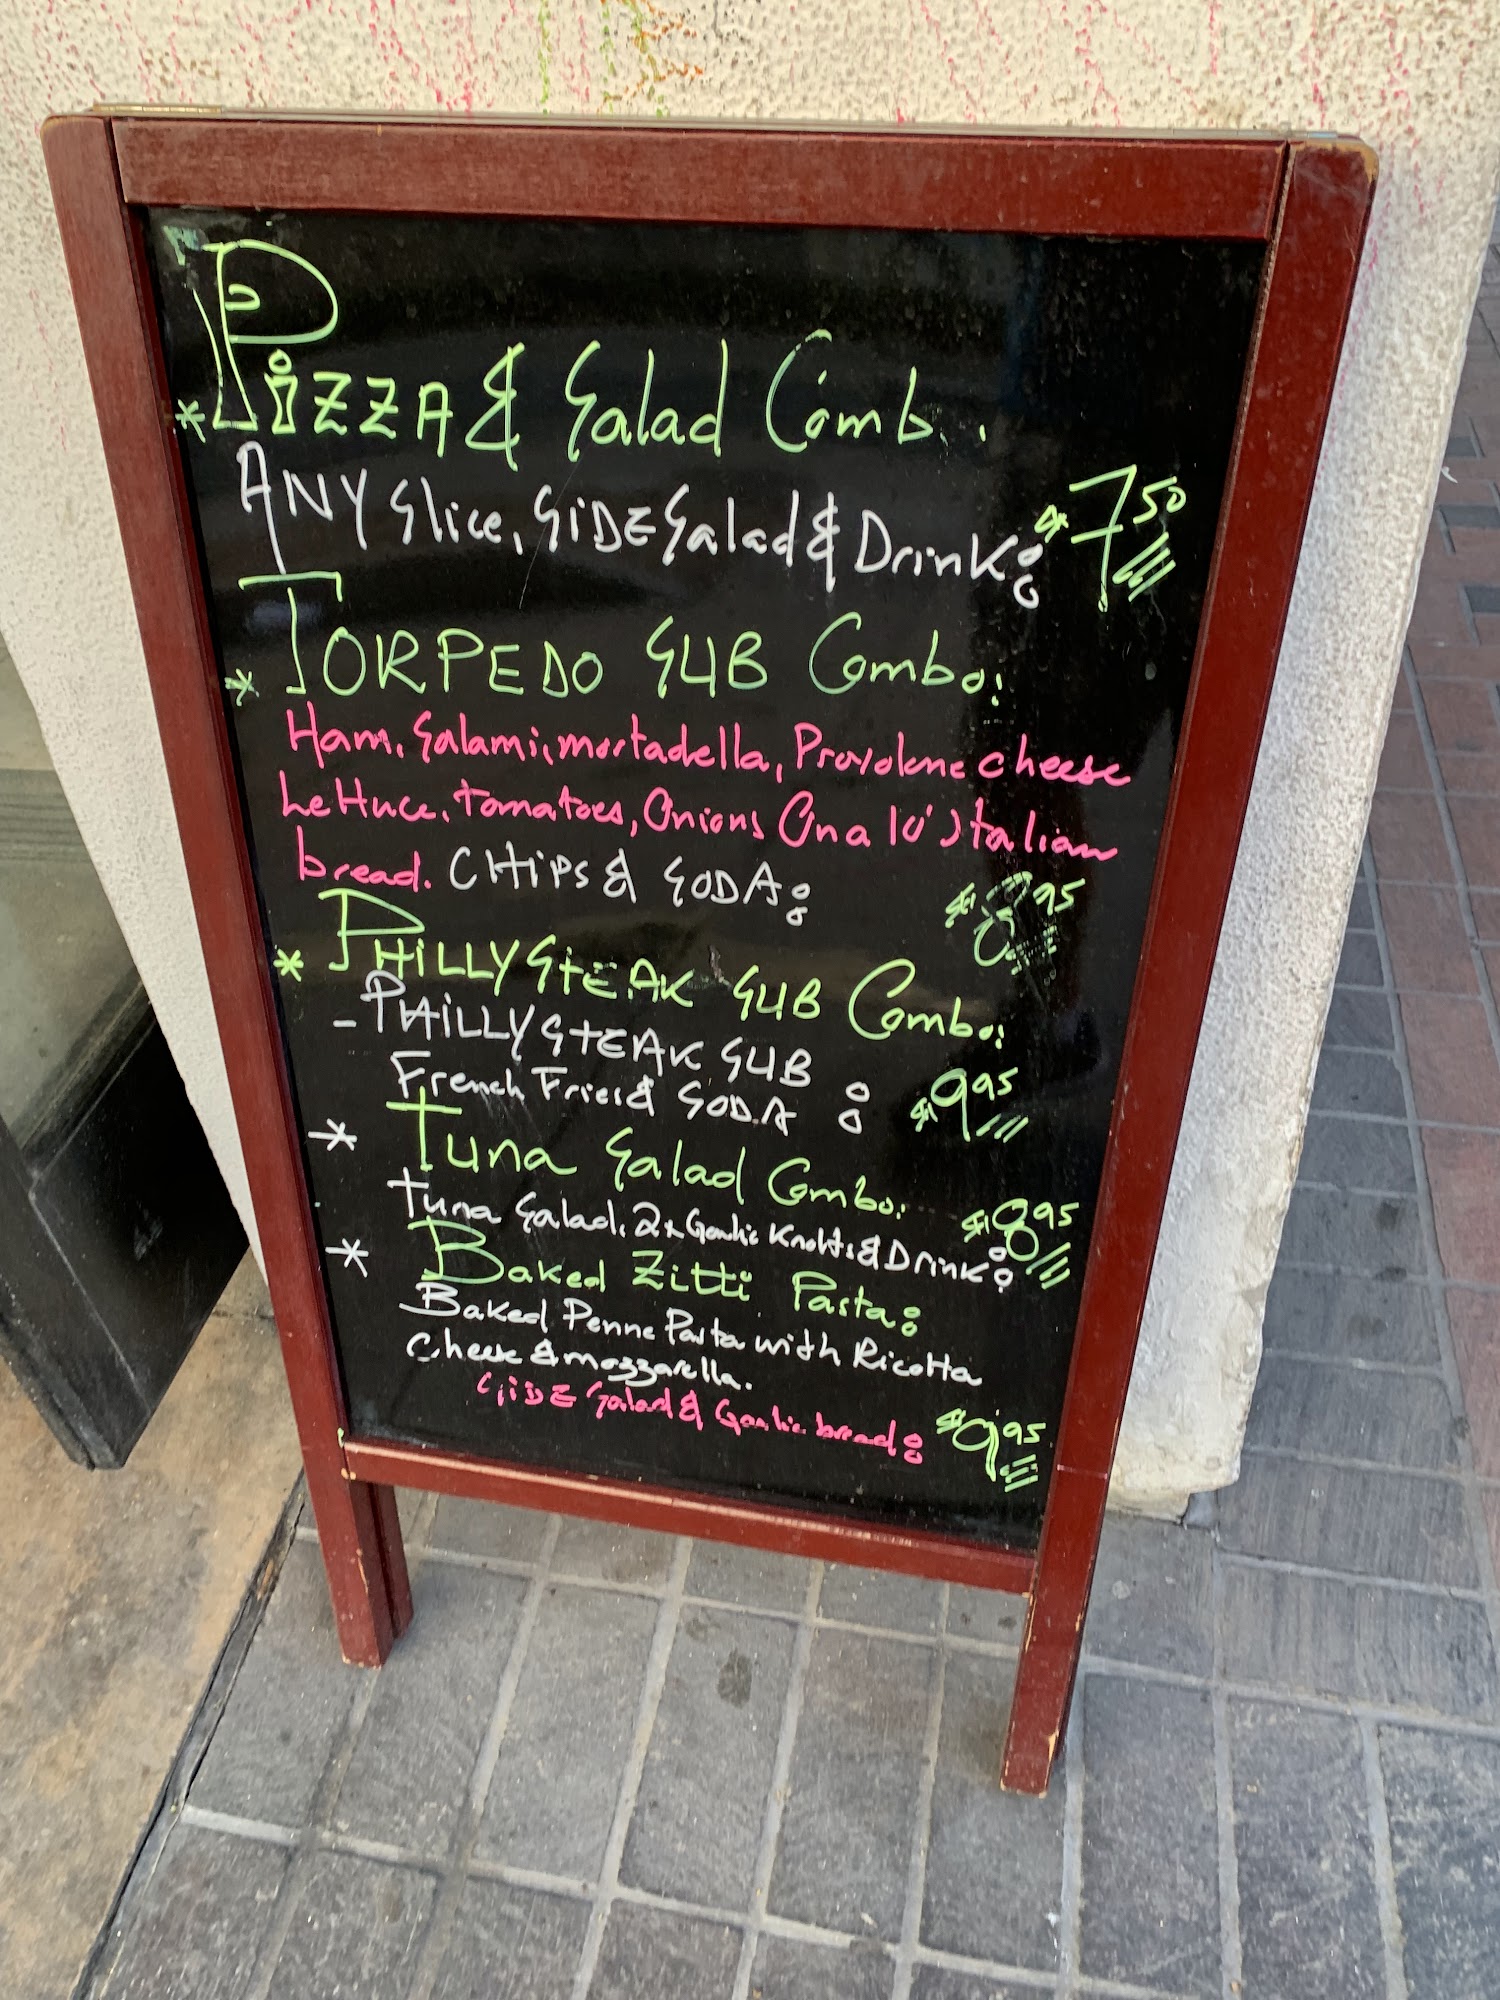 * Pizza & Salad Comb..
ANY Slice, SiDE Salad & Drink: $7.50
* TORPEDO SUB Combo:
Ham, Salami, mortadella, Provolone cheese
Lettuce, tomatoes, Onions On a 10" Italian
bread. CHiPS & SODA: $8.95
* PHiLLY STEAK SUB Combo:
- PHiLLY STEAK SUB
French Fries & SODA : $9.95
* Tuna Salad Combo:
Tuna Salad, 2x Garlic Knots & Drink: $8.95
* BAKED Zitti Pasta:
BAKED Penne Pasta with Ricotta
Cheese & mozzarella.
SiDE Salad & Garlic bread: $9.95